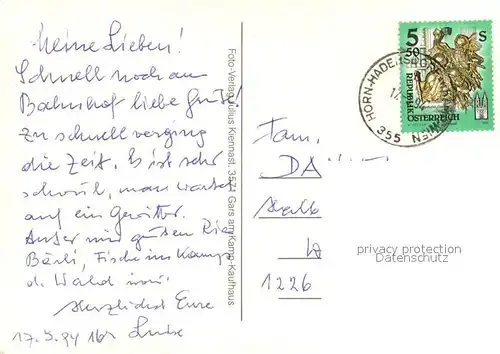 Meine Lieben!
Schnell noch am
Bahnhof liebe Grüße!
Zu schnell verging
die Zeit. Es ist sehr
schwül, man wartet
auf ein Gewitter.
Bärli, Fische im Kamp
d. Wald
Herzlichst Eure
17.5.94 16h
Foto-Verlag Julius Kiennast, 3571 Gars am Kamp-Kaufhaus
5 S
50
REPUBLIK
ÖSTERREICH
HORN-HADERSDORF
355
Fam.
DA
1226
privacy protection
Datenschutz